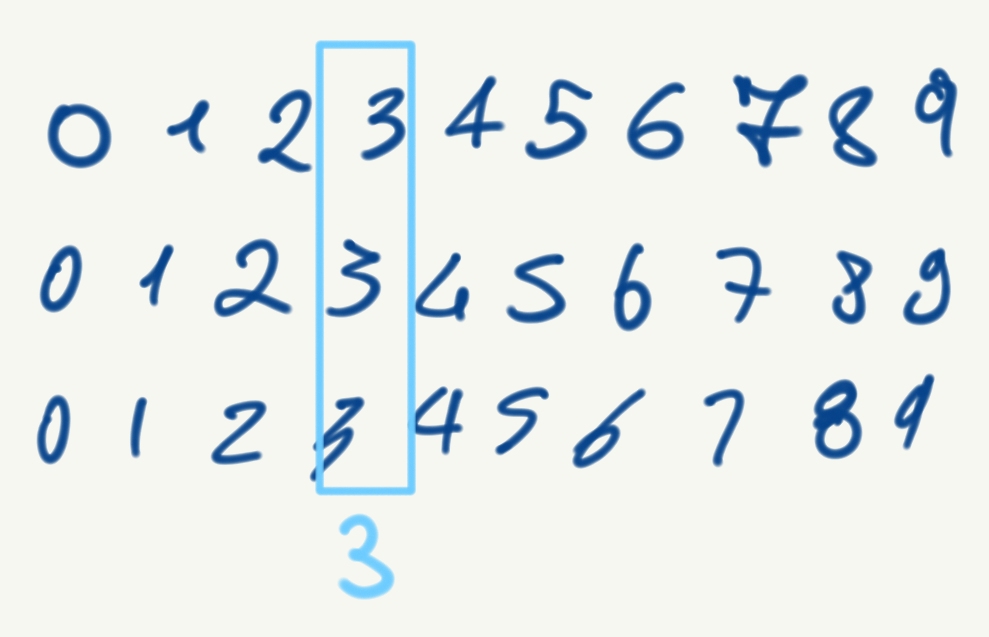 0 1 2 3 4 5 6 7 8 9
0 1 2 3 4 5 6 7 8 9
0 1 2 3 4 5 6 7 8 9
3